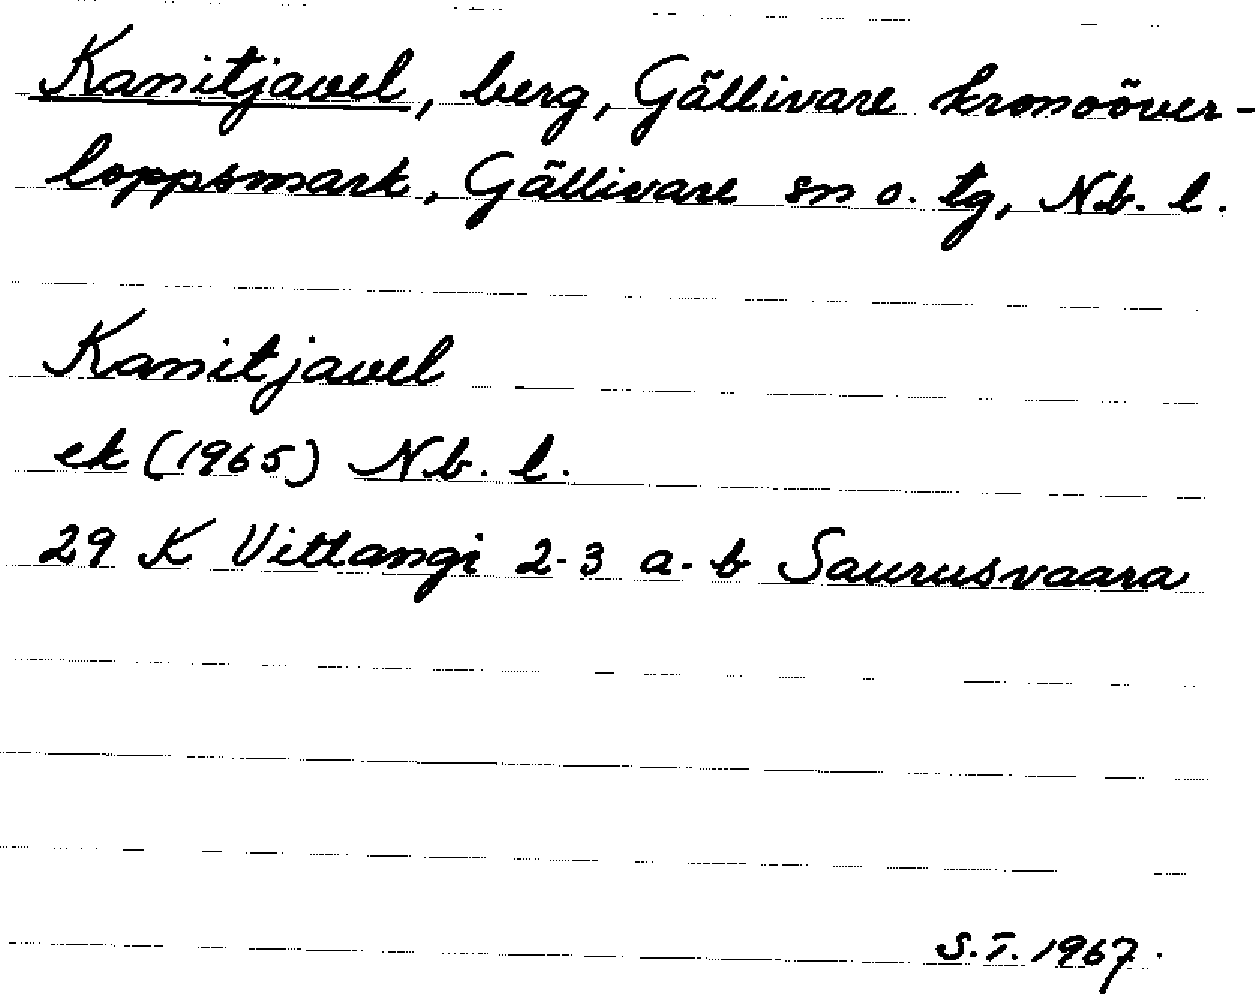 Kanitjavel, berg, Gällivare kronoöver-
loppsmark, Gällivare sn o. tg, Nb. l.
Kanitjavel
ek (1965) Nb. l.
29 K Vittangi 2-3 a-b Saurusvaara
S.T. 1967.